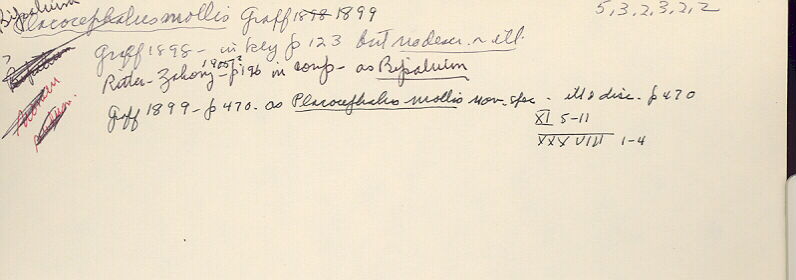 Bipalium
Placocephalus mollis Graff 1898 1899
5,3,2,3,2,2
? Graff 1898 - in key p 123 but no descr. n ill.
Bipalium
Ritter-Zahony 1905? - p 196 in comp - as Bipalium
Graff 1899 - p 470 - as Placocephalus mollis nov. spec - ill & disc. p 470
XI 5-11
XXXVIII 1-4